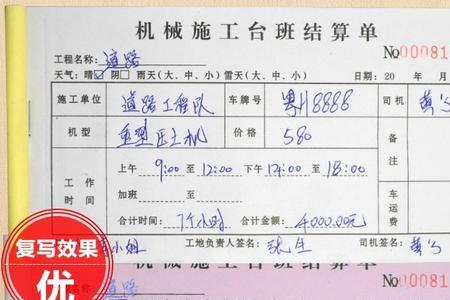 机械施工台班结算单
No00081
工程名称: 道路
天气: 晴☑ 阴□ 雨天(大、中、小) 雷天(大、中、小) 日期: 20 年 月
施工单位 道路工程队 车牌号 粤A8888 司机 黄
机型 重型压土机 价格 580 备注
上午 9:00 至 12:00 下午 14:00 至 18:00
工作时间 加班 至 车运费
合计时间: 7个小时 合计金额: 4000.00元
小姐 工地负责人签名: 张生 司机签名: 黄
复写效果
优
机械施工台班结算单
No00081
道路